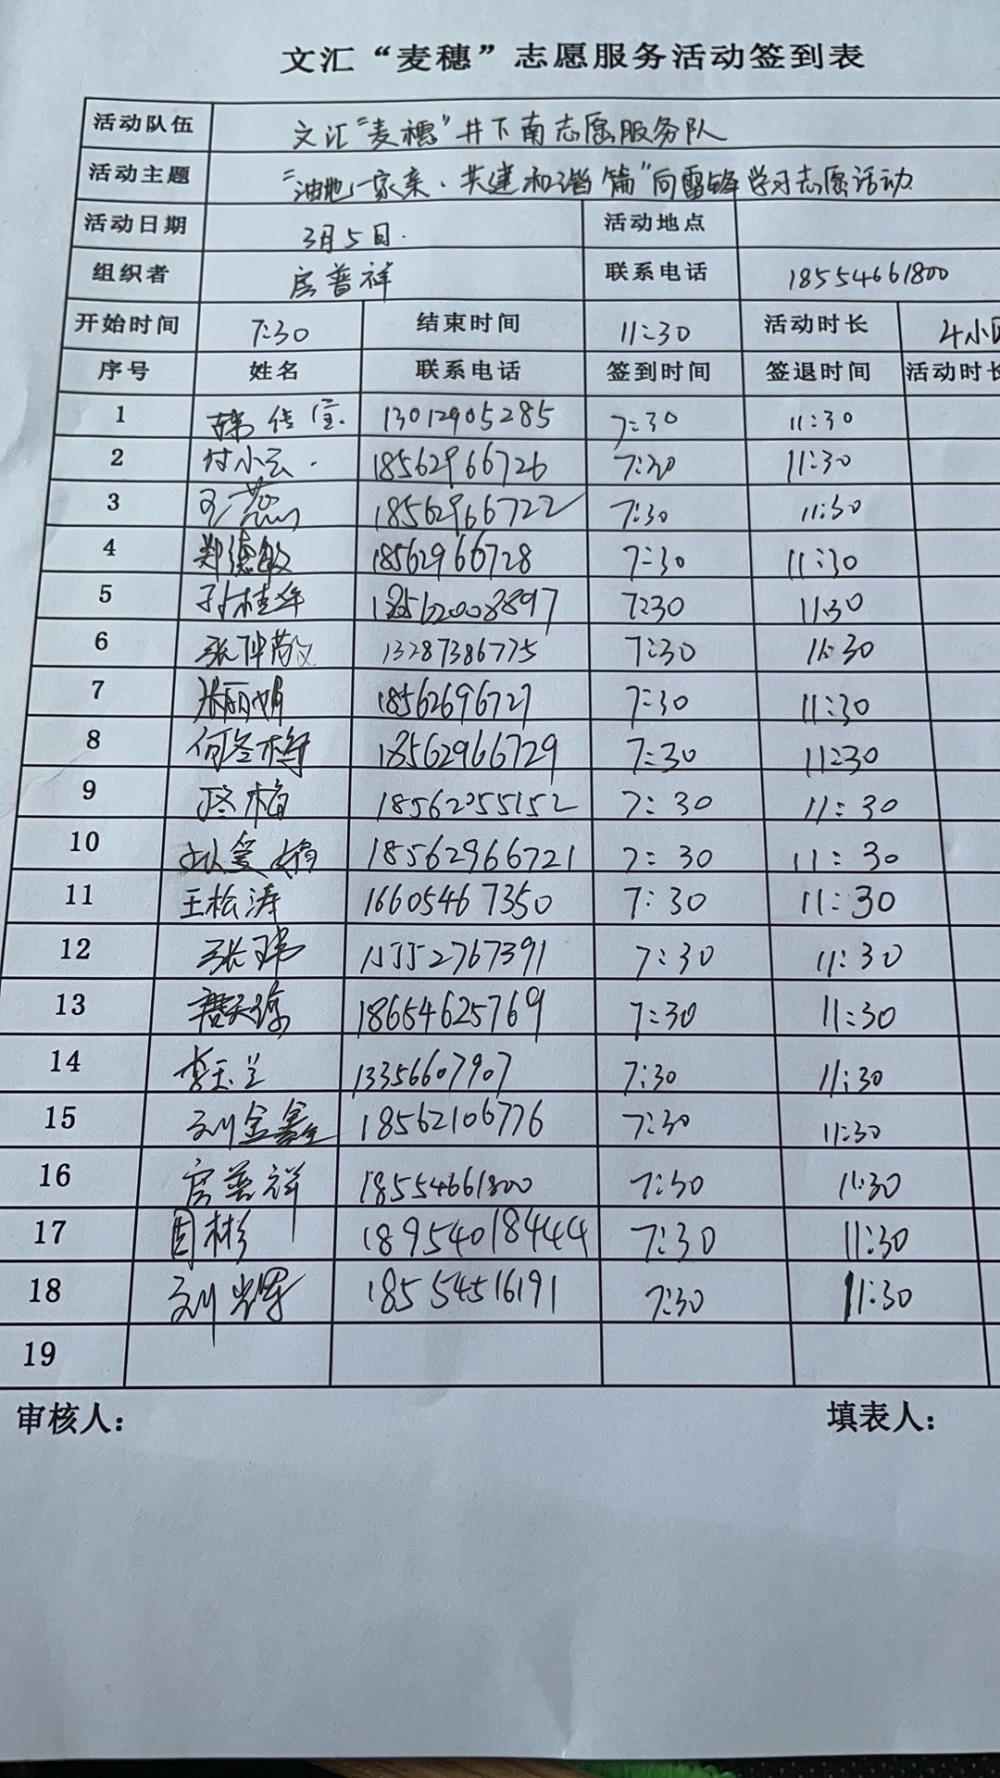 文汇“麦穗”志愿服务活动签到表
活动队伍 文汇“麦穗”井下南志愿服务队
活动主题 “油地一家亲·共建和谐篇”向雷锋学习志愿活动
活动日期 3月5日. 活动地点
组织者 房普祥 联系电话 18554661800
开始时间 7:30 结束时间 11:30 活动时长 4小
序号 姓名 联系电话 签到时间 签退时间 活动时长
1 13012905285 7:30 11:30
2 付小云. 18562966726 7:30 11:30
3 18562966722 7:30 11:30
4 郑德敏 18562966728 7:30 11:30
5 孙桂华 7:30 11:30
6 13287386775 7:30 11:30
7 张丽娟 18562696727 7:30 11:30
8 何冬梅 18562966729 7:30 11:30
9 18562055152 7:30 11:30
10 18562966721 7:30 11:30
11 王松涛 16605467350 7:30 11:30
12 张玮 15552767391 7:30 11:30
13 18654625769 7:30 11:30
14 李玉兰 13356607907 7:30 11:30
15 刘金鑫 18562106776 7:30 11:30
16 房普祥 18554661800 7:30 11:30
17 周彬 18954018444 7:30 11:30
18 刘辉 18554516191 7:30 11:30
19
审核人: 填表人: